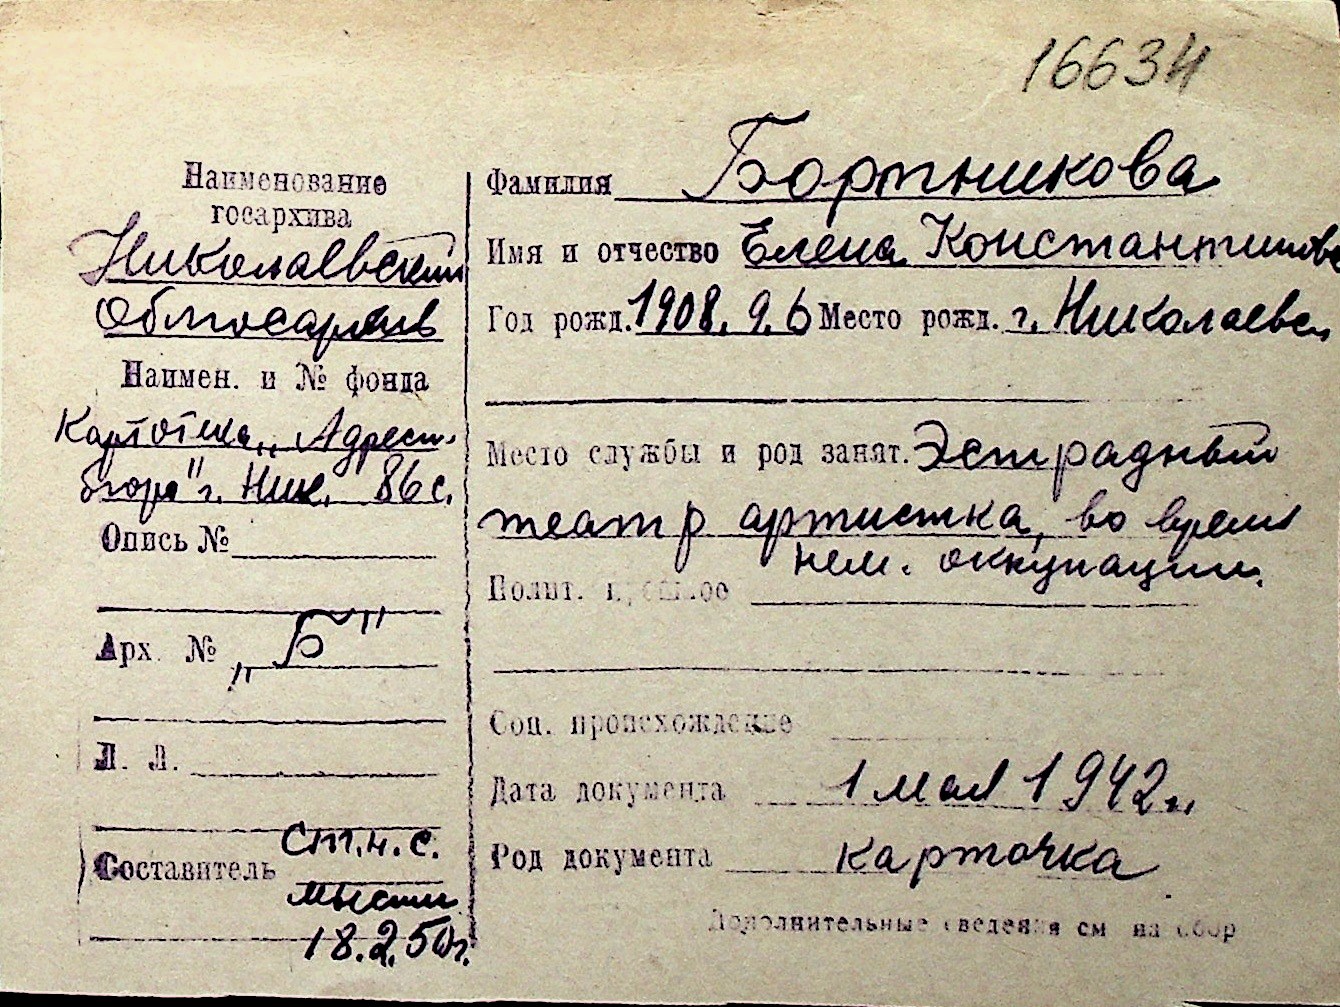 16634
Наименование
госархива
Николаевский
Облгосархив
Наимен. и № фонда
Картотека „Адресн.
бюро" г. Ник. 86 с.
Опись №
Арх. № „Б"
Л. Л.
Составитель ст. н. с.
18.2.50 г.
Фамилия Бортникова
Имя и отчество Елена Константинов
Год рожд. 1908. 9. 6 Место рожд. г. Николаевск
Место службы и род занят. Эстрадный
театр артистка, во время
нем. оккупации.
Полит. прошлое
Соц. происхождение
Дата документа 1 мая 1942 г.
Род документа карточка
Дополнительные сведения см на обор